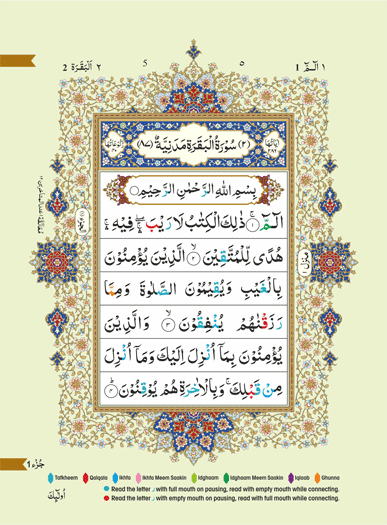 ٢ البقرة 2
5
٥
١ الٓمّٓ 1
اٰیَاتُهَا ٢٨٦
(٢) سُوْرَةُ الْبَقَرَةِ مَدَنِیَّةٌ (٨٧)
رُكُوْعَاتُهَا ٤٠
بِسْمِ اللّٰهِ الرَّحْمٰنِ الرَّحِیْمِ
الٓمّٓ ۚ﴿۱﴾ ذٰلِكَ الْكِتٰبُ لَا رَیْبَ ۛۖ فِیْهِ ۛۚ
هُدًی لِّلْمُتَّقِیْنَ ۙ﴿۲﴾ الَّذِیْنَ یُؤْمِنُوْنَ
بِالْغَیْبِ وَ یُقِیْمُوْنَ الصَّلٰوةَ وَ مِمَّا
رَزَقْنٰهُمْ یُنْفِقُوْنَ ۙ﴿۳﴾ وَ الَّذِیْنَ
یُؤْمِنُوْنَ بِمَاۤ اُنْزِلَ اِلَیْكَ وَ مَاۤ اُنْزِلَ
مِنْ قَبْلِكَ ۚ وَ بِالْاٰخِرَةِ هُمْ یُوْقِنُوْنَ ؕ﴿۴﴾
جُزْء 1
Tafkheem Qalqala Ikhfa Ikhfa Meem Saakin Idghaam Idghaam Meem Saakin Iqlaab Ghunna
اُولٰٓىِٕكَ
Read the letter ر with full mouth on pausing, read with empty mouth while connecting.
Read the letter ر with empty mouth on pausing, read with full mouth while connecting.